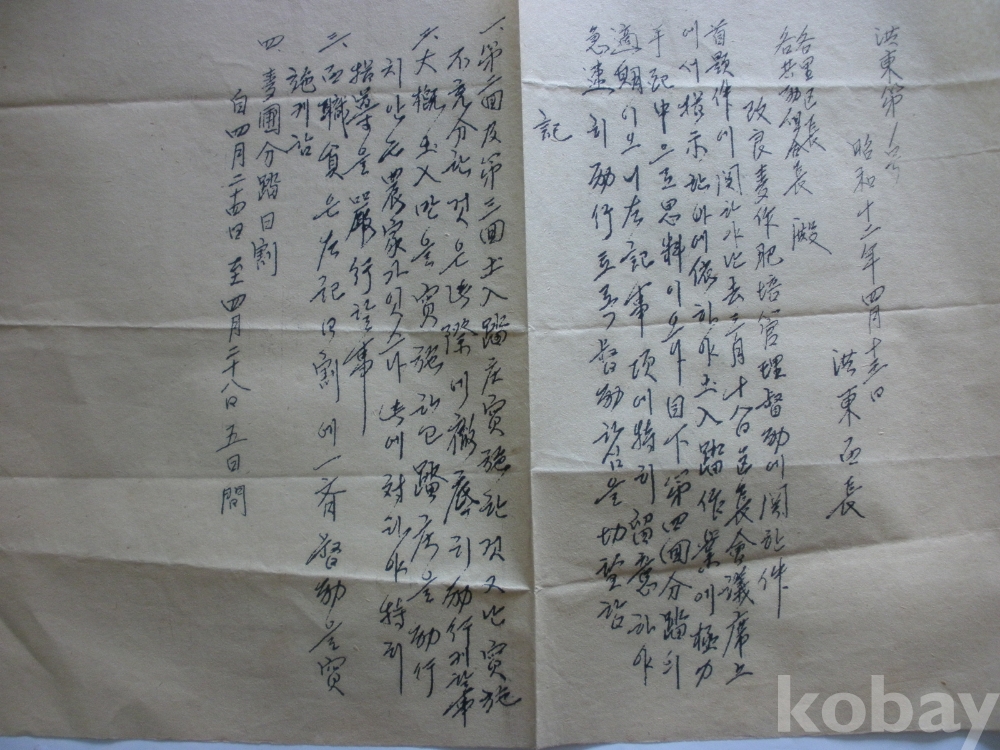 洪東第 号
昭和十二年四月 日
洪東面長
各里區長
各共勵組合長 殿
改良麦作肥培管理督勵에関한件
首題件에関하야난去三月十 日区長會議席上
에서指示한바에依하야土入踏作業에極力
手配中으로思料이오나目下第四回分踏의
適期이오니左記事項에特히留意하야
急速히励行토록督励하심을切望함
記
一、第二回及第三回土入踏広實施한것又난實施
不充分한것은此際에徹底히励行케할事
二、大概土入만을實施하고踏広을励行
치안은農家가잇스니此에対하야特히
指導를嚴行할事
三、面職員은左記日割에一斉督励을實
施케함
四、麦圃分踏日割
自四月二十四日至四月二十八日五日間
kobay